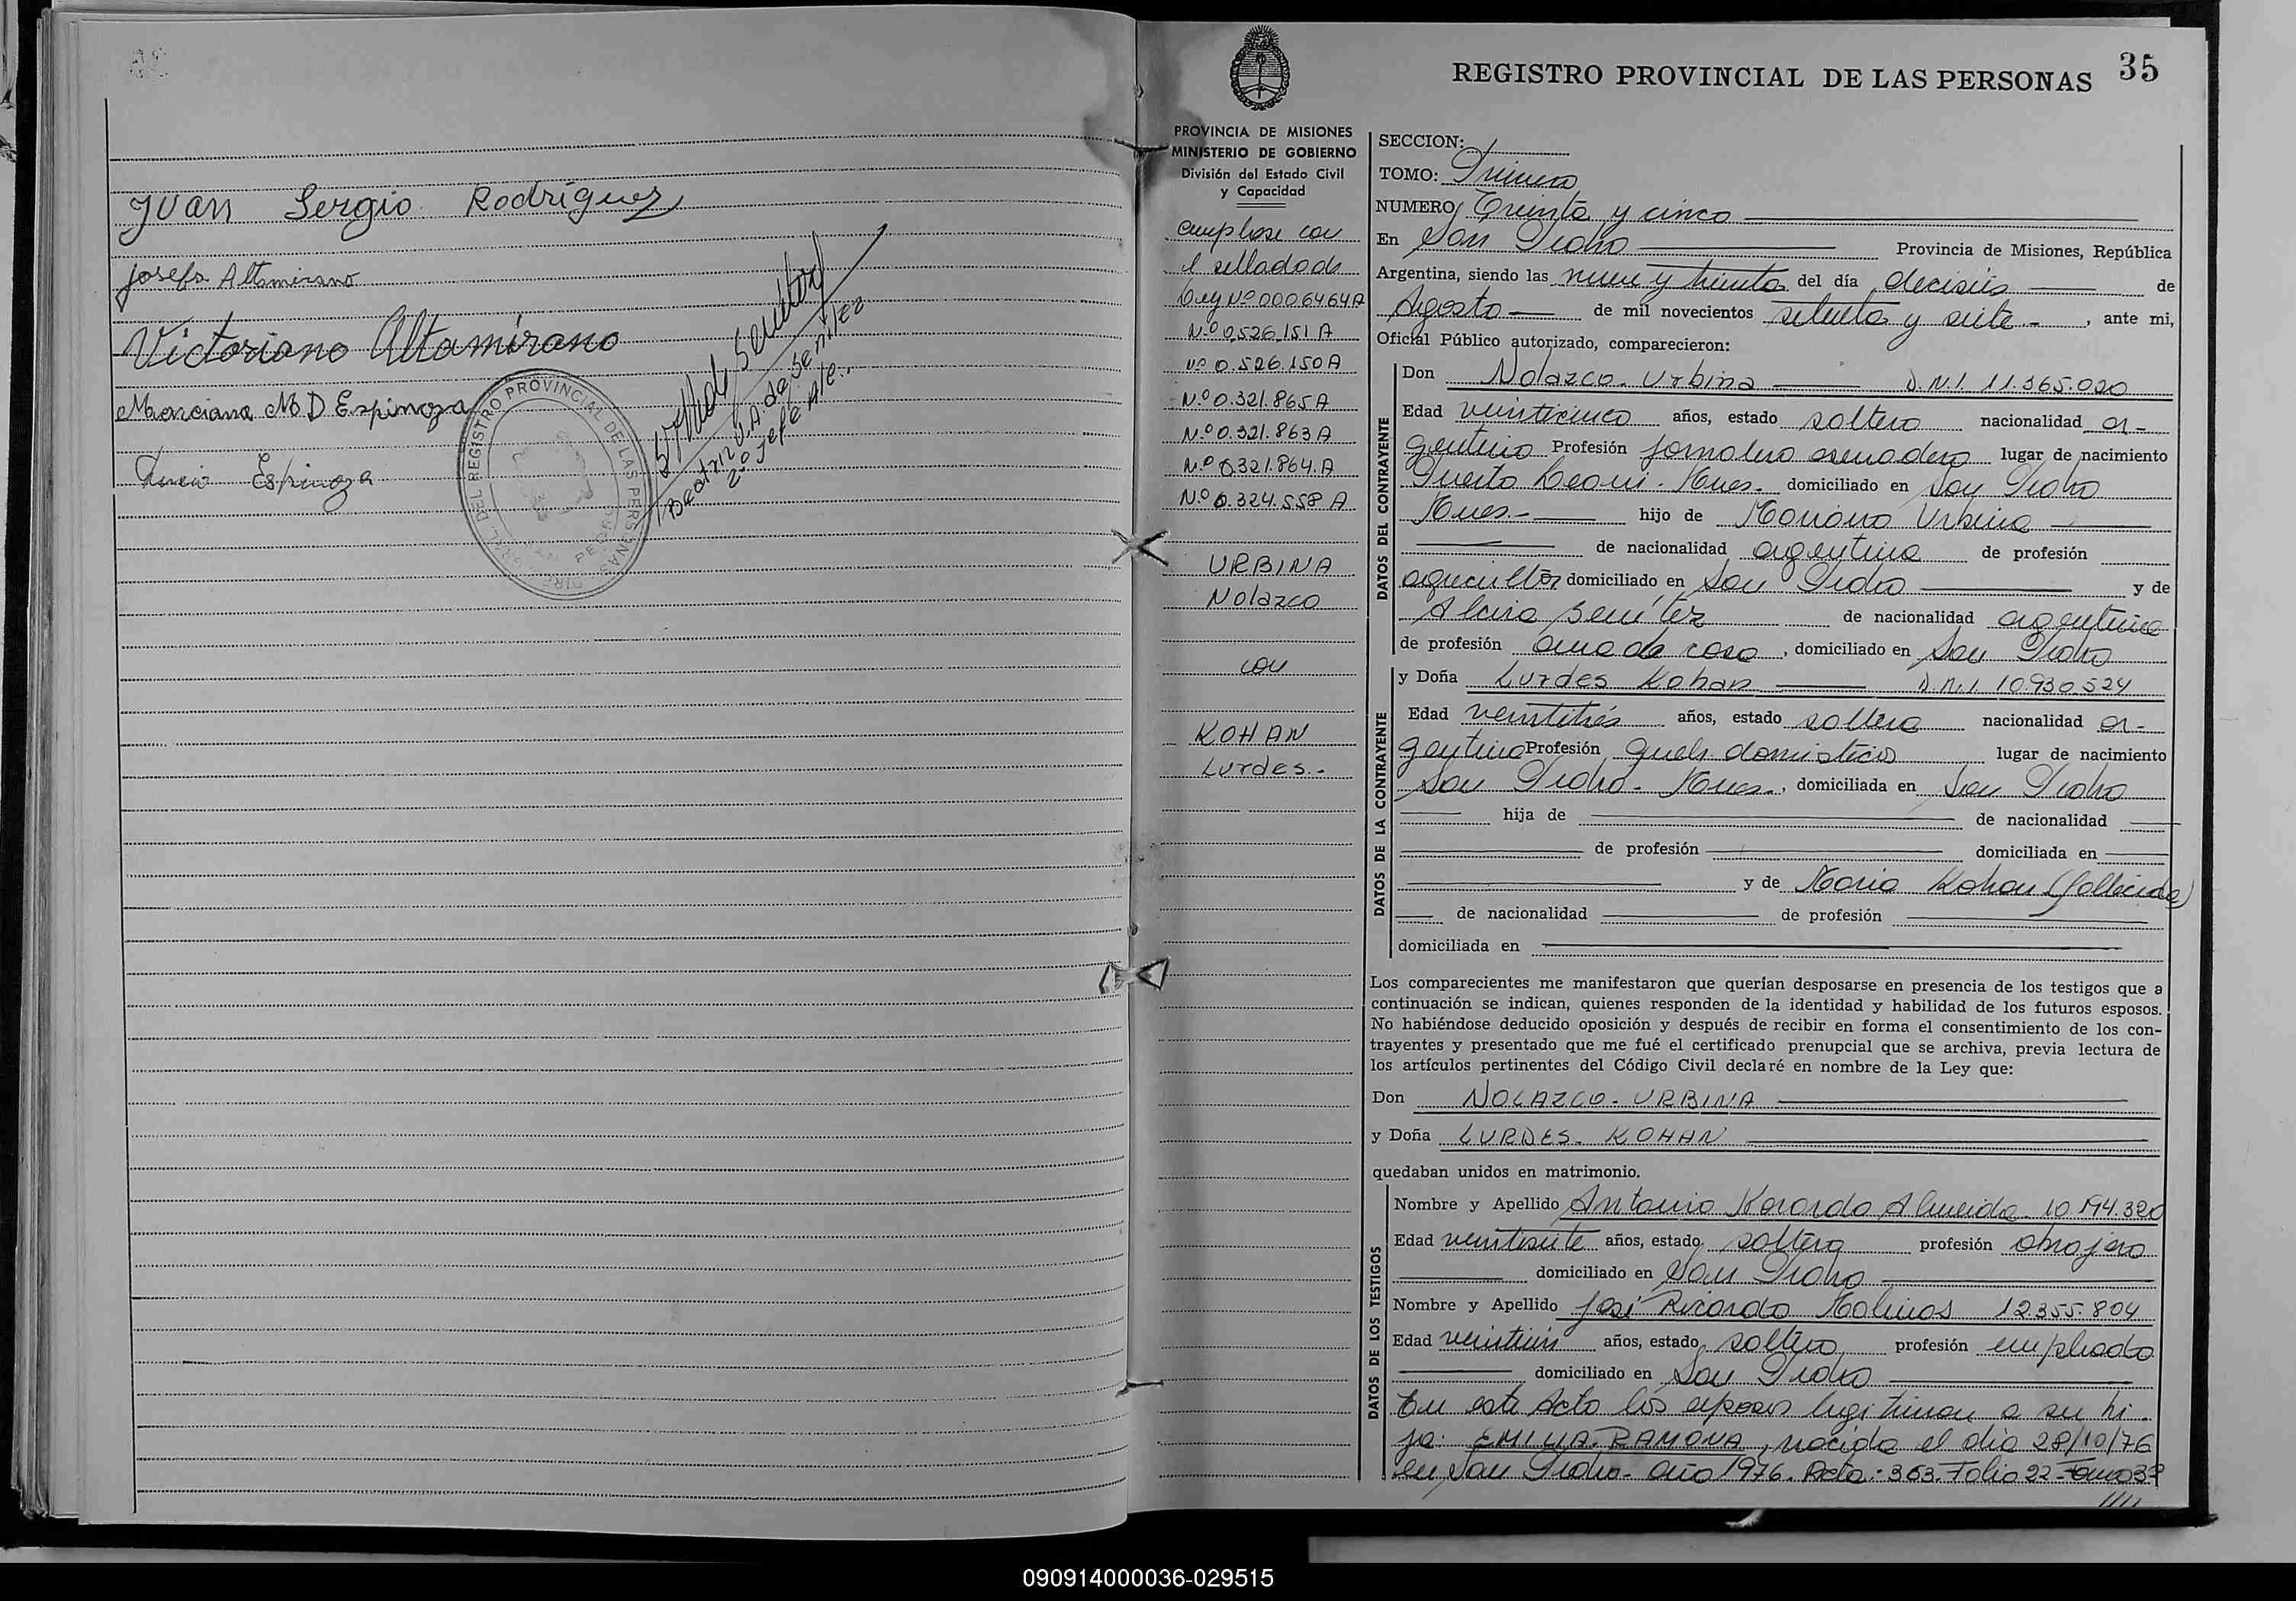 Juan Sergio Rodríguez
Josefa Altamirano
Victoriano Altamirano
Marciana M D Espinoza
Lucio Espinoza
REGISTRO PROVINCIAL DE LAS PERSONAS
SAN PEDRO
Beatriz V.A. de Benitez
2º Jefe
35
REGISTRO PROVINCIAL DE LAS PERSONAS
PROVINCIA DE MISIONES
MINISTERIO DE GOBIERNO
División del Estado Civil
y Capacidad
el sellado de
Ley Nº 0006464A
Nº 0.526.151 A
Nº 0.526.150 A
Nº 0.321.865 A
Nº 0.321.863 A
Nº 0.321.864 A
Nº 0.324.558 A
URBINA
Nolazco
con
KOHAN
Lurdes.-
SECCION:
TOMO: Primero
NUMERO Treinta y cinco
En San Pedro Provincia de Misiones, República
Argentina, siendo las nueve y treinta del día dieciséis de
Agosto de mil novecientos setenta y siete.- , ante mi,
Oficial Público autorizado, comparecieron:
DATOS DEL CONTRAYENTE
Don Nolazco. Urbina D.N.I. 11.365.020
Edad veinticinco años, estado soltero nacionalidad ar-
gentino Profesión jornalero lugar de nacimiento
Puerto Leoni. Mnes. domiciliado en San Pedro
Mnes.- hijo de Mariano Urbina
de nacionalidad argentina de profesión
agricultor domiciliado en San Pedro y de
Benítez de nacionalidad argentina
de profesión ama de casa, domiciliado en San Pedro
DATOS DE LA CONTRAYENTE
y Doña Lurdes Kohan D.N.I. 10.930.524
Edad veintitrés años, estado soltera nacionalidad ar-
gentina Profesión queh. domésticos lugar de nacimiento
San Pedro. Mnes., domiciliada en San Pedro
hija de de nacionalidad
de profesión domiciliada en
y de María Kohan (fallecida)
de nacionalidad de profesión
domiciliada en
Los comparecientes me manifestaron que querían desposarse en presencia de los testigos que a
continuación se indican, quienes responden de la identidad y habilidad de los futuros esposos.
No habiéndose deducido oposición y después de recibir en forma el consentimiento de los con-
trayentes y presentado que me fué el certificado prenupcial que se archiva, previa lectura de
los artículos pertinentes del Código Civil declaré en nombre de la Ley que:
Don NOLAZCO. URBINA
y Doña LURDES. KOHAN
quedaban unidos en matrimonio.
DATOS DE LOS TESTIGOS
Nombre y Apellido Antonio Almeida 10.194.320
Edad veintisiete años, estado soltero profesión obrajero
domiciliado en San Pedro
Nombre y Apellido José Ricardo Molinas 12.355.804
Edad años, estado soltero profesión empleado
domiciliado en San Pedro
En este Acto los esposos legitiman a su hi-
ja: EMILIA. RAMONA, nacida el día 28/10/76
en San Pedro- año 1976. Acta: 363. Folio 22- Tomo 3º
////
090914000036-029515